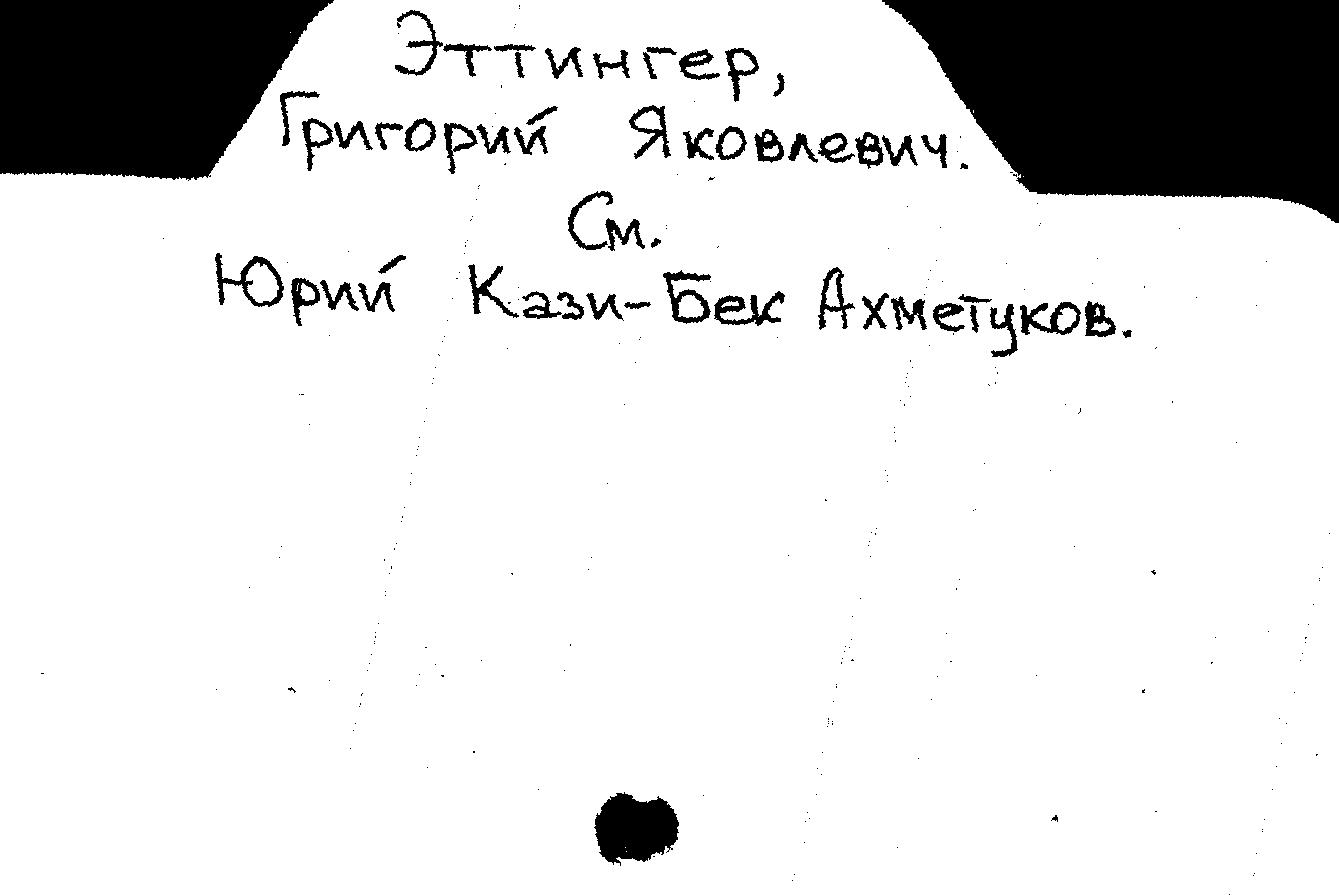 Эттингер,
Григорий Яковлевич.
См.
Юрий Кази-Бек Ахметуков.